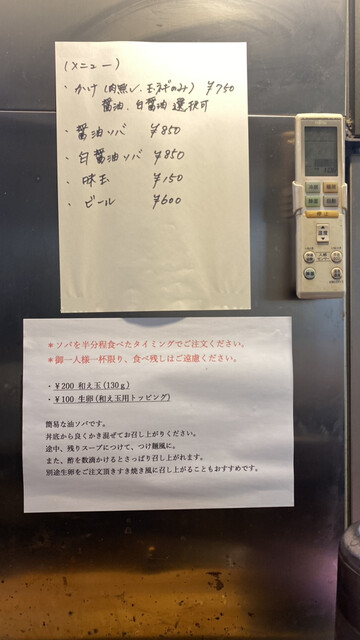 (メニュー)
・かけ(肉無し、ネギのみ) ¥750
醤油、白醤油 選択可
・醤油ソバ ¥850
・白醤油ソバ ¥850
・味玉 ¥150
・ビール ¥600
*ソバを半分程食べたタイミングでご注文ください。
*御一人様一杯限り、食べ残しはご遠慮ください。
・¥200 和え玉(130g)
・¥100 生卵(和え玉用トッピング)
簡易な油ソバです。
丼底から良くかき混ぜてお召し上がりください。
途中、残りスープにつけて、つけ麺風に。
また、酢を数滴かけるとさっぱり召し上がれます。
別途生卵をご注文頂きすき焼き風に召し上がることもおすすめです。
停止
温度